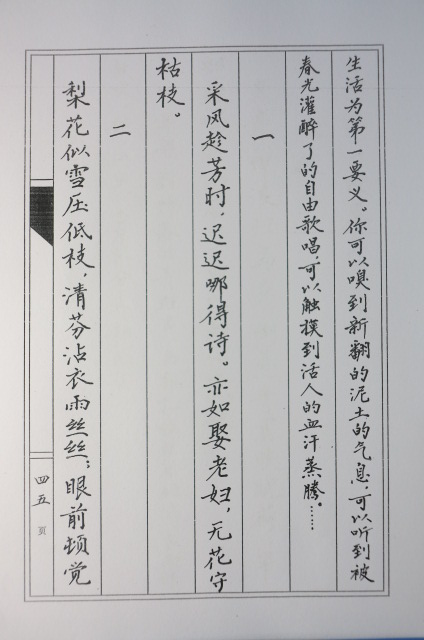 生活为第一要义。你可以嗅到新翻的泥土的气息,可以听到被
春光灌醉了的自由歌唱,可以触摸到活人的血汗蒸腾。……
一
采风趁芳时,迟迟哪得诗。亦如娶老妇,无花守
枯枝。
二
梨花似雪压低枝,清芬沾衣雨丝丝;眼前顿觉
四五页